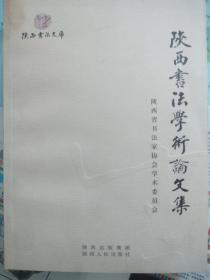 陕西书法文库
陝西書法學術論文集
陕西省书法家协会学术委员会
陕西出版集团
陕西人民出版社